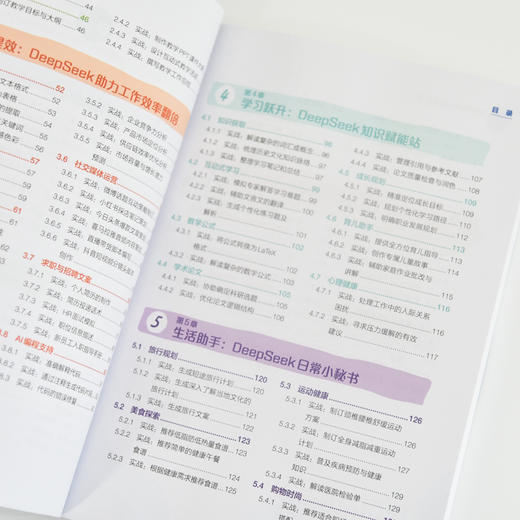 订教学目标与大纲 46
44
46
2.4.2 实战：制作教学PPT课件
2.4.3 实战：设计互动式教学活动
2.4.4 实战：撰写教学工作总结
提效：DeepSeek助力工作效率翻倍
52
文本格式 52
表格 53
的提取 54
关键词 55
感色彩 56
57
57
58
59
59
61
61
3.5.2 实战：企业竞争力分析
3.5.3 实战：产品市场定位分析
3.5.4 实战：供应链效率优化分析
3.5.5 实战：市场容量与增长潜力
预测
3.6 社交媒体运营
3.6.1 实战：微博话题互动策略制订
3.6.2 实战：小红书探店笔记
3.6.3 实战：今日头条爆款文章
3.6.4 实战：喜马拉雅音频内容
3.6.5 实战：直播带货脚本编写
3.6.6 实战：抖音短视频分镜头脚本
创作
3.7 求职与招聘文案
3.7.1 实战：个人简历的制作
3.7.2 实战：简历投递话术
3.7.3 实战：HR面试模拟
3.7.4 实战：职位信息描述
3.7.5 实战：新员工入职指导手册
3.8 AI编程支持
3.8.1 实战：准确解释代码
3.8.2 实战：通过注释生成代码
3.8.3 实战：代码的错误修复
目 录
4 第4章
学习跃升：DeepSeek知识赋能站
4.1 知识获取 96
4.1.1 实战：解读复杂的词汇或概念 96
4.1.2 实战：梳理历史文化知识脉络 97
4.1.3 实战：整理学习笔记和总结 98
4.2 互动式学习 99
4.2.1 实战：模拟专家解答学习难题 99
4.2.2 实战：辅助文言文的翻译 100
4.2.3 实战：生成个性化练习题及
解析 101
4.3 数学公式 102
4.3.1 实战：将公式转换为LaTeX
格式 102
4.3.2 实战：解读复杂的数学公式 103
4.4 学术论文 105
4.4.1 实战：协助确定科研选题 105
4.4.2 实战：优化论文逻辑结构 106
4.4.3 实战：管理引用与参考文献 107
4.4.4 实战：论文质量检查与润色 108
4.5 成长规划 109
4.5.1 实战：精准定位成长目标 109
4.5.2 实战：规划个性化学习路径 110
4.5.3 实战：明晰职业发展规划 112
4.6 育儿助手 113
4.6.1 实战：提供全方位育儿指导 113
4.6.2 实战：创作专属儿童故事 114
4.6.3 实战：辅助家庭作业批改与
讲解 115
4.7 心理健康 116
4.7.1 实战：处理工作中的人际关系
困扰 116
4.7.2 实战：寻求压力缓解的有效
建议 117
5 第5章
生活助手：DeepSeek日常小秘书
5.1 旅行规划 120
5.1.1 实战：生成短途旅行计划 120
5.1.2 实战：生成深入了解当地文化的
旅行计划 121
5.1.3 实战：生成旅行文案 122
5.2 美食探索 123
5.2.1 实战：推荐低脂肪低热量食谱 123
5.2.2 实战：推荐简单的健康午餐
食谱 124
5.2.3 实战：根据健康需求推荐食谱 125
5.3 运动健康 126
5.3.1 实战：制订颈椎腰椎舒缓运动
方案 126
5.3.2 实战：制订全身减脂减重运动
计划 127
5.3.3 实战：普及疾病预防与健康
知识 128
5.3.4 实战：解读医院检验单 129
5.4 购物时尚 129
5.4.1 实战：推荐适合